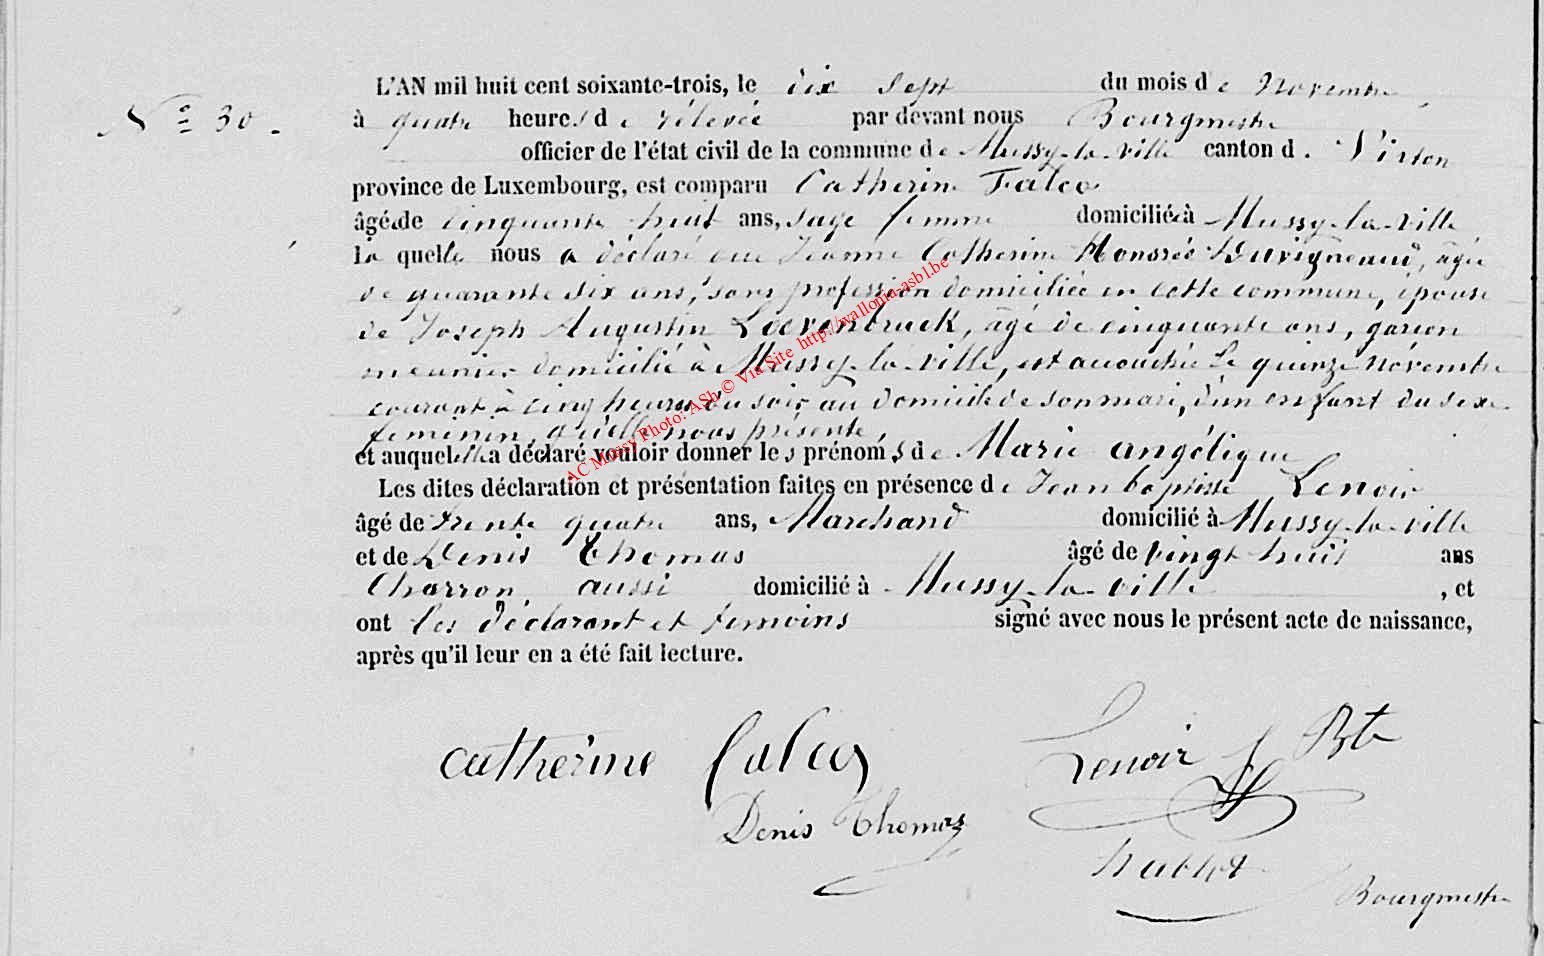 L'AN mil huit cent soixante-trois, le dix sept du mois de Novembre
N° 30. à quatre heures de rélevée par devant nous Bourgmestre
officier de l'état civil de la commune de Mussy-la-ville canton d. Virton
province de Luxembourg, est comparu Catherine Falco
âgé de cinquante huit ans, sage femme domiciliée à Mussy-la-ville
la quelle nous a déclaré que Jeanne Catherine Honoréé Duvigneaud, âgée
de quarante six ans, sans profession domiciliée en cette commune, épouse
de Joseph Augustin Loevenbruck, âgé de cinquante ans, garçon
meunier domicilié à Mussy-la-ville, est accouchée le quinze Novembre
courant à cinq heures du soir au domicile de son mari, d'un enfant du sexe
feminin, qu'elle nous présente,
et auquel elle a déclaré vouloir donner les prénoms de Marie angélique
Les dites déclaration et présentation faites en présence de Jean baptiste Lenoir
âgé de trente quatre ans, Marchand domicilié à Mussy-la-ville
et de Denis Thomas âgé de vingt huit ans
Charron, aussi domicilié à Mussy-la-ville, et
ont les déclarant et temoins signé avec nous le présent acte de naissance,
après qu'il leur en a été fait lecture.
catherine falco Lenoir J Bte
Denis Thomas
hublot
Bourgmestre
AC Mussy Photo: ASh © Via Site http://wallonia-asbl.be